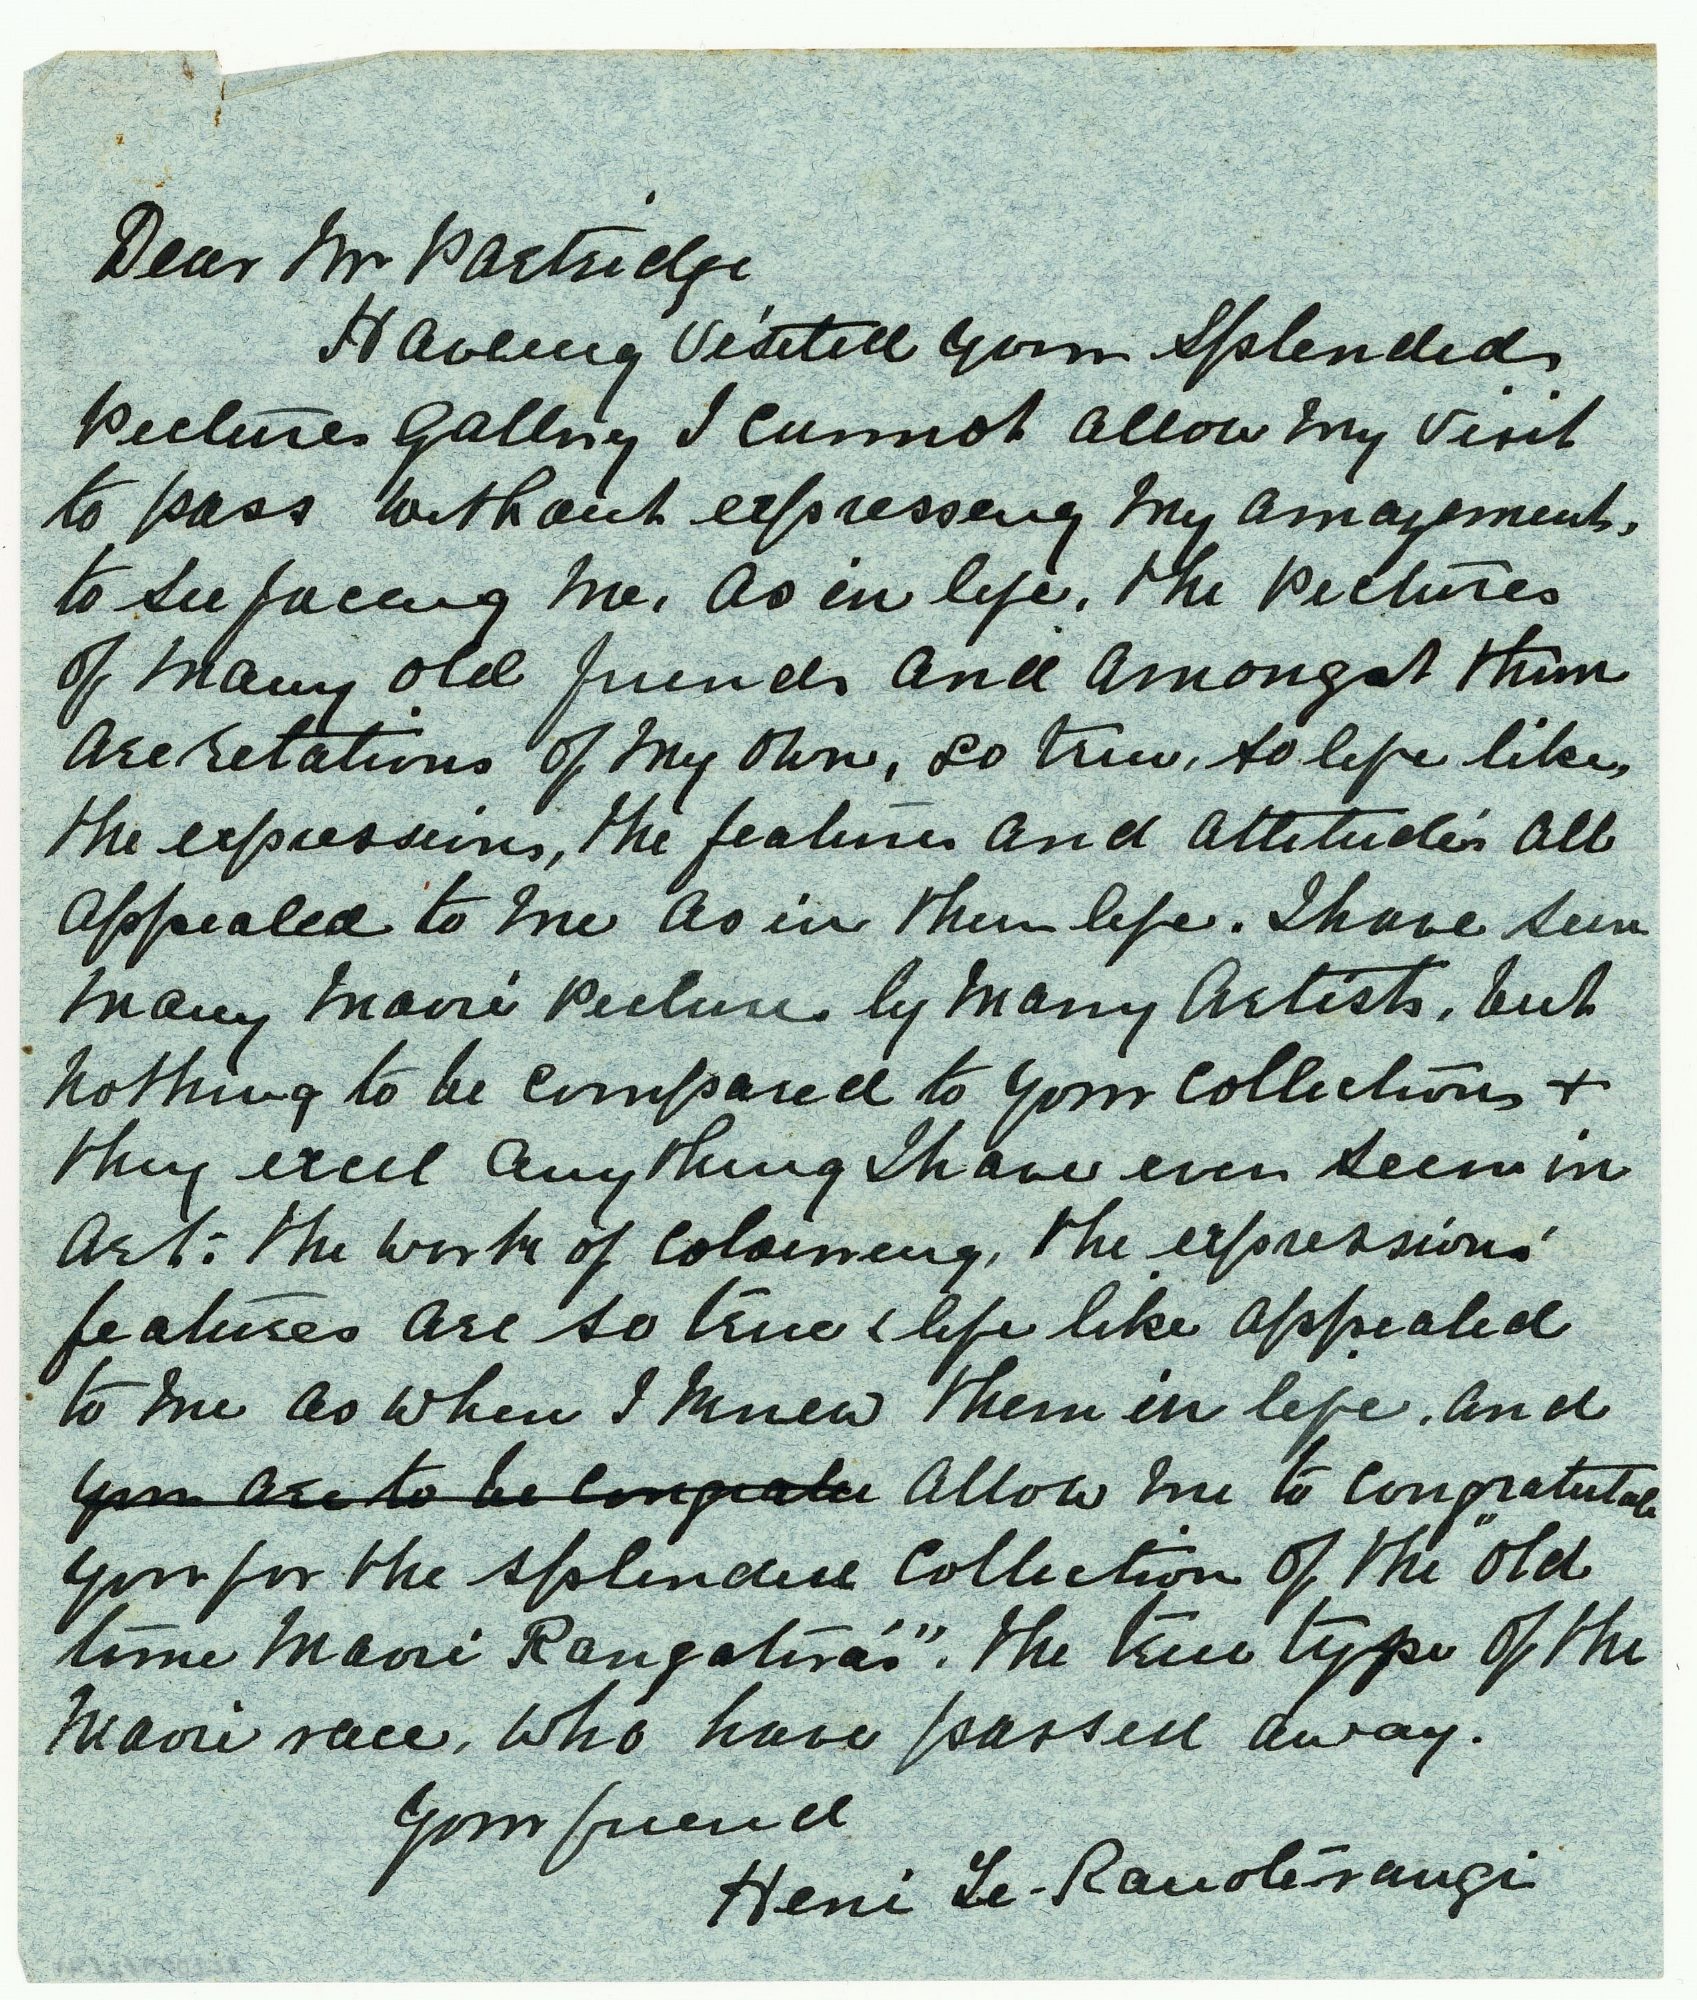 Dear Mr Partridge
Having visited your splendid
Pictures Gallery I cannot allow my visit
to pass without expressing my amazement,
to see facing me, as in life, the Pictures
of many old friends and amongst them
are relations of my own, so true, so life like,
the expressions, the features and attitudes all
appealed to me as in their life. I have seen
many Maori Pictures by many Artists, but
nothing to be compared to your collections +
they excel anything I have ever seen in
Art: the work of colouring, the expressions
features are so true & life like appealed
to me as when I knew them in life, and
you are to be congratu allow me to congratutale
you for the splended collection of the "old
time Maori Rangatira's". The true type of the
Maori race, who have passed away.
Your friend
Heni Te-Rauoterangi